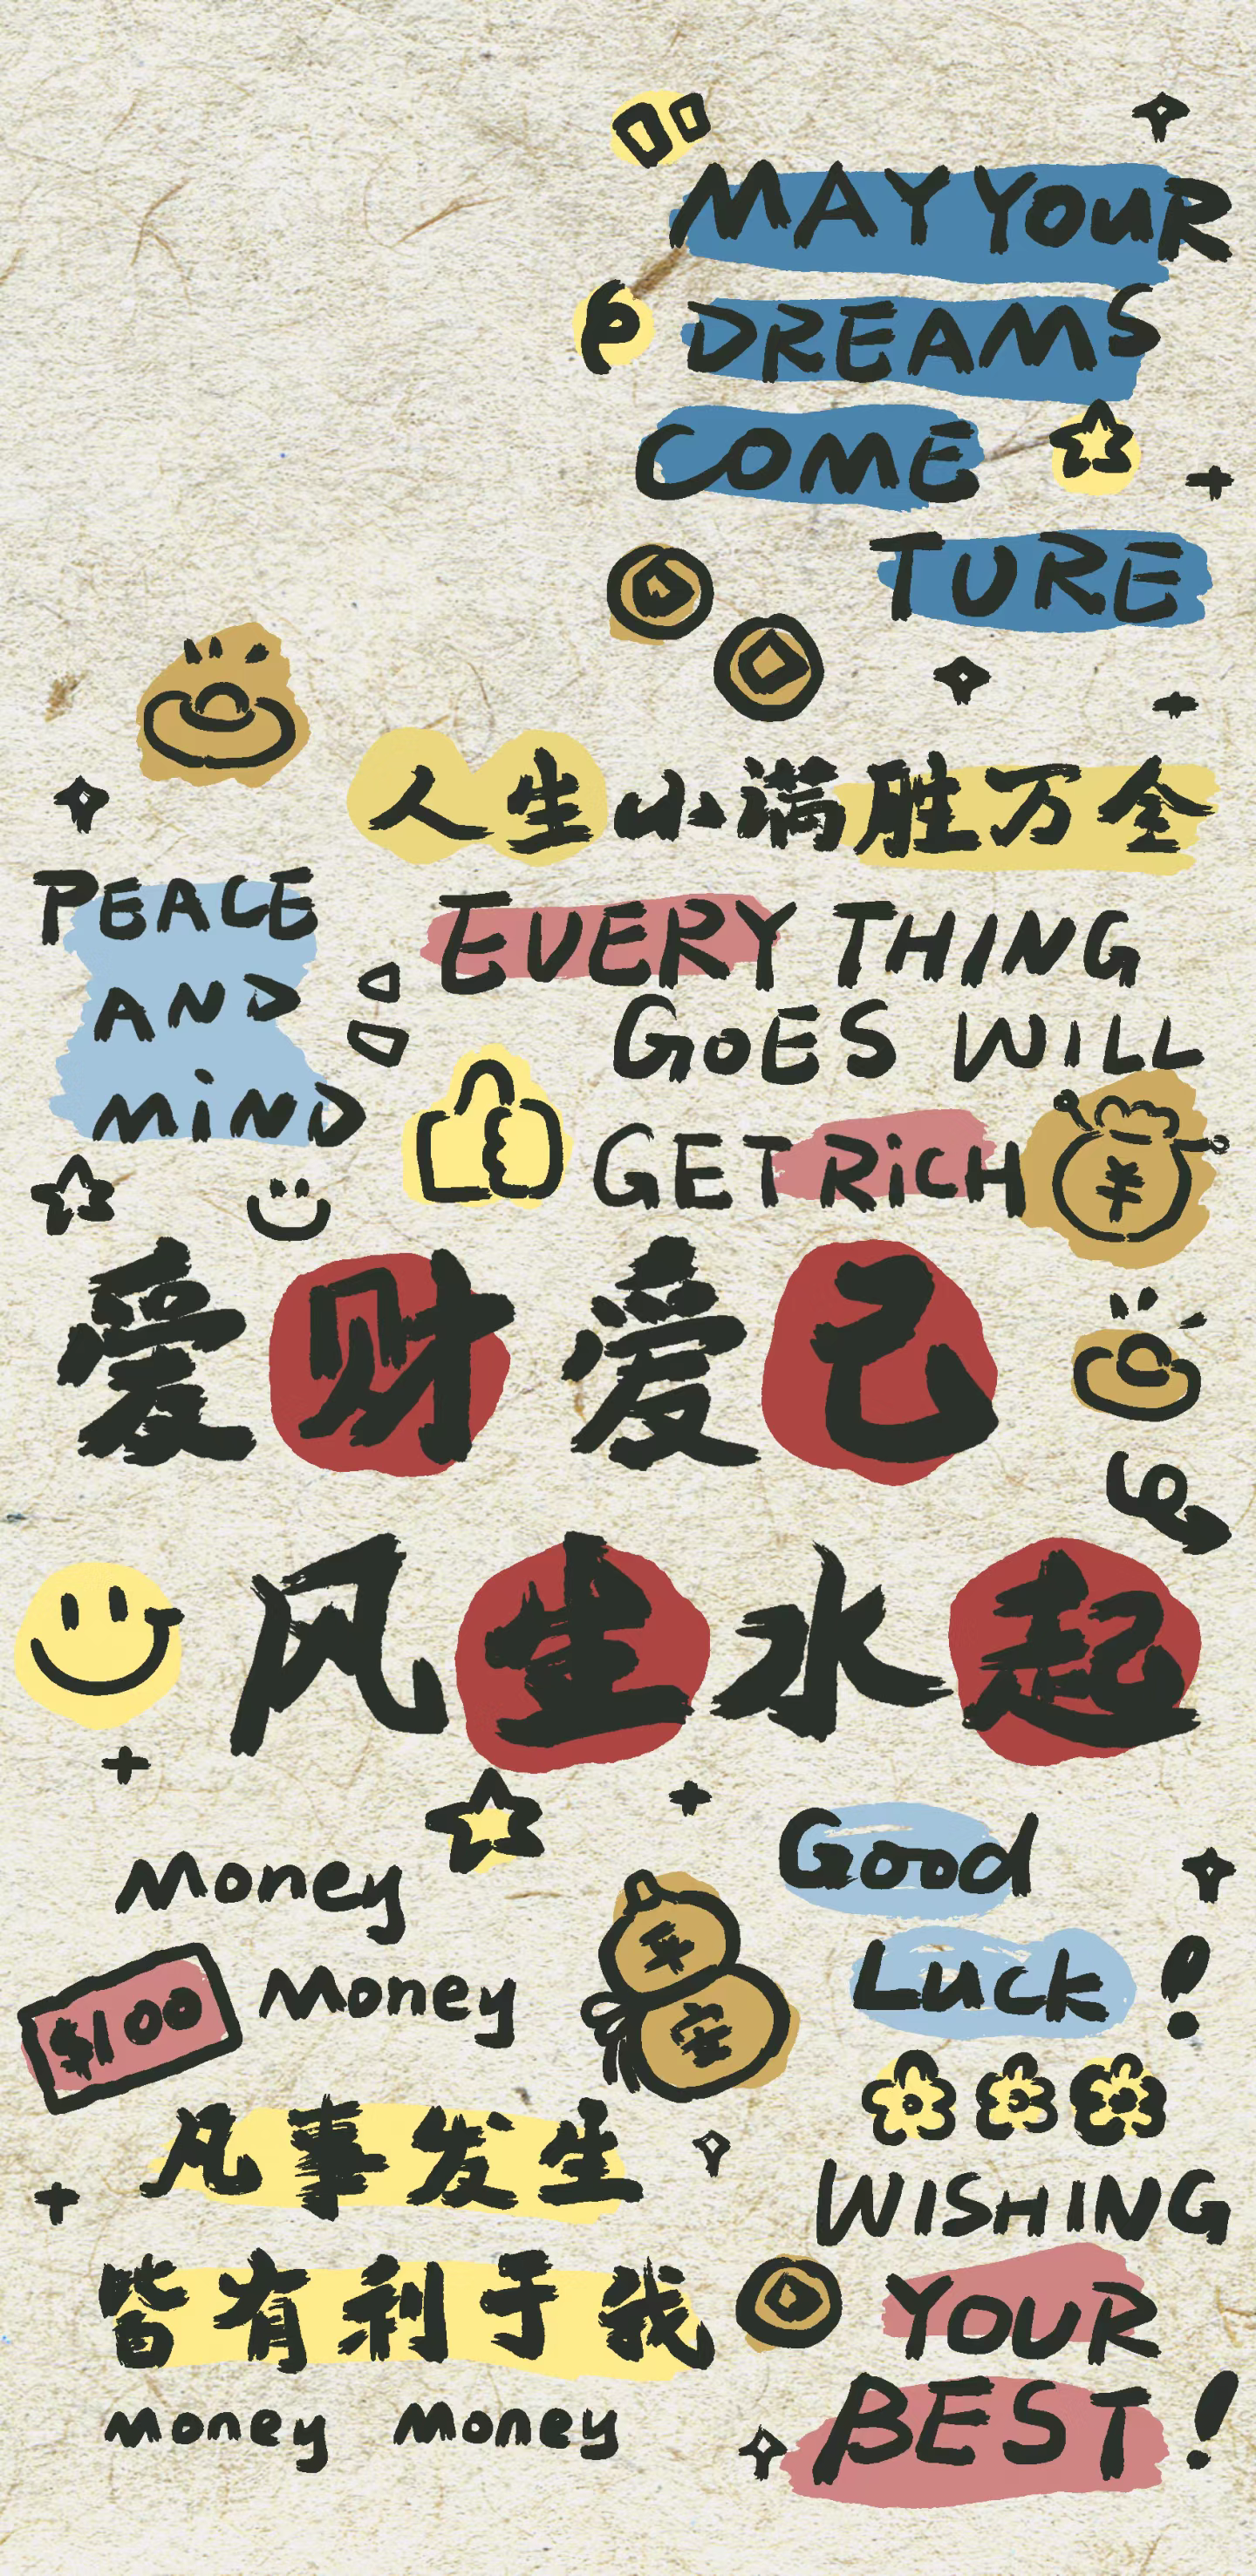 MAY YOUR
DREAMS
COME
TURE
人生小满胜万全
PEACE
AND
MiND
EVERY THING
GOES WILL
GET RiCH
¥
爱财爱己
风生水起
Money
Money
$100
平
安
Good
Luck!
凡事发生
皆有利于我
Money Money
WISHING
YOUR
BEST!